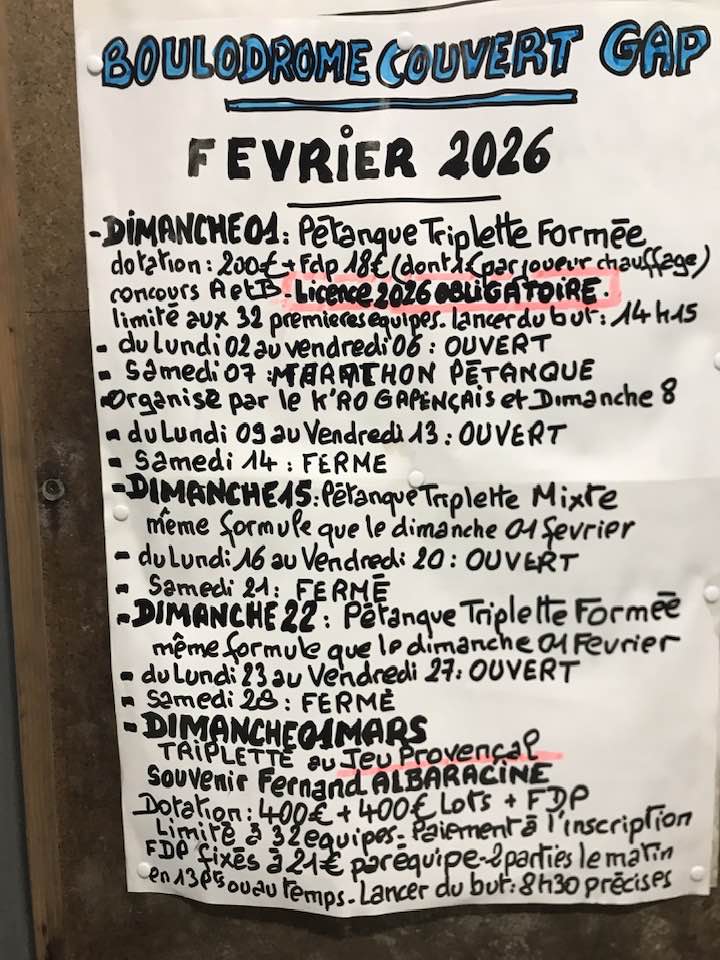 BOULODROME COUVERT GAP
FEVRIER 2026
- DIMANCHE 01: Pétanque Triplette Formée
dotation: 200€ + Fdp 18€ (dont 1€ par joueur chauffage)
concours A et B - Licence 2026 OBLIGATOIRE.
limité aux 32 premieres équipes. lancer du but: 14h15
- du Lundi 02 au vendredi 06: OUVERT
- Samedi 07: MARATHON PÉTANQUE
organisé par le K'RO GAPENÇAIS et Dimanche 8
- du Lundi 09 au Vendredi 13: OUVERT
- Samedi 14: FERME
- DIMANCHE 15: Pétanque Triplette Mixte
même formule que le dimanche 01 fevrier
- du Lundi 16 au Vendredi 20: OUVERT
- Samedi 21: FERMÉ
- DIMANCHE 22: Pétanque Triplette Formée
même formule que le dimanche 01 Février
- du Lundi 23 au Vendredi 27: OUVERT
- Samedi 28: FERMÉ
- DIMANCHE 01 MARS
TRIPLETTE au Jeu Provençal
Souvenir Fernand ALBARACINE
Dotation: 400€ + 400€ Lots + FDP
Limité à 32 équipes - Paiement à l'inscription
FDP fixés à 21€ par équipe - 2 parties le matin
en 13 pts ou au temps - Lancer du but: 8h30 précises